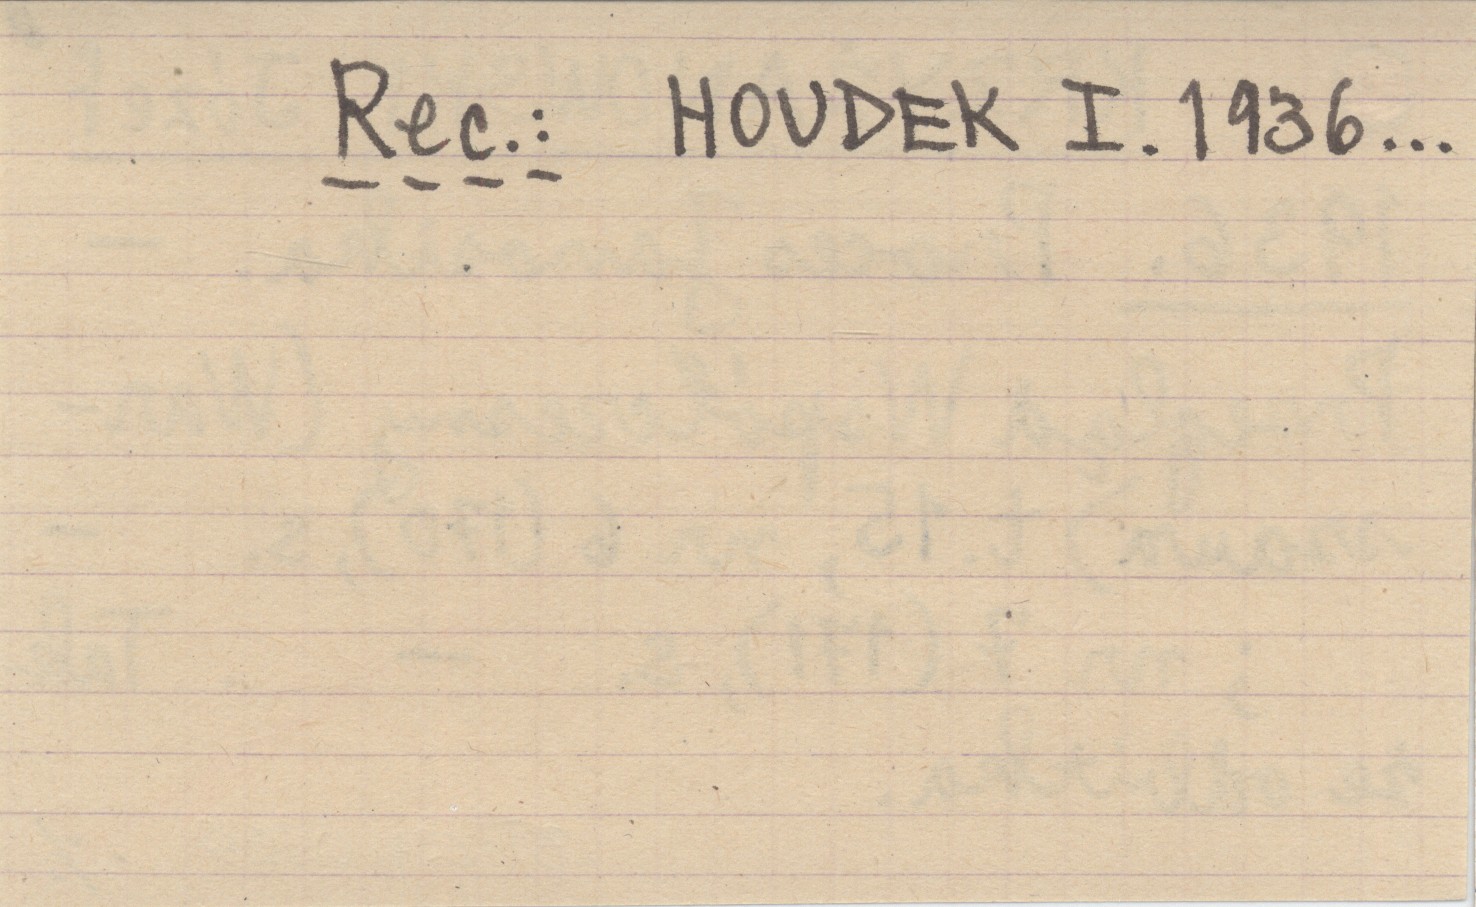 Rec.: HOUDEK I. 1936...